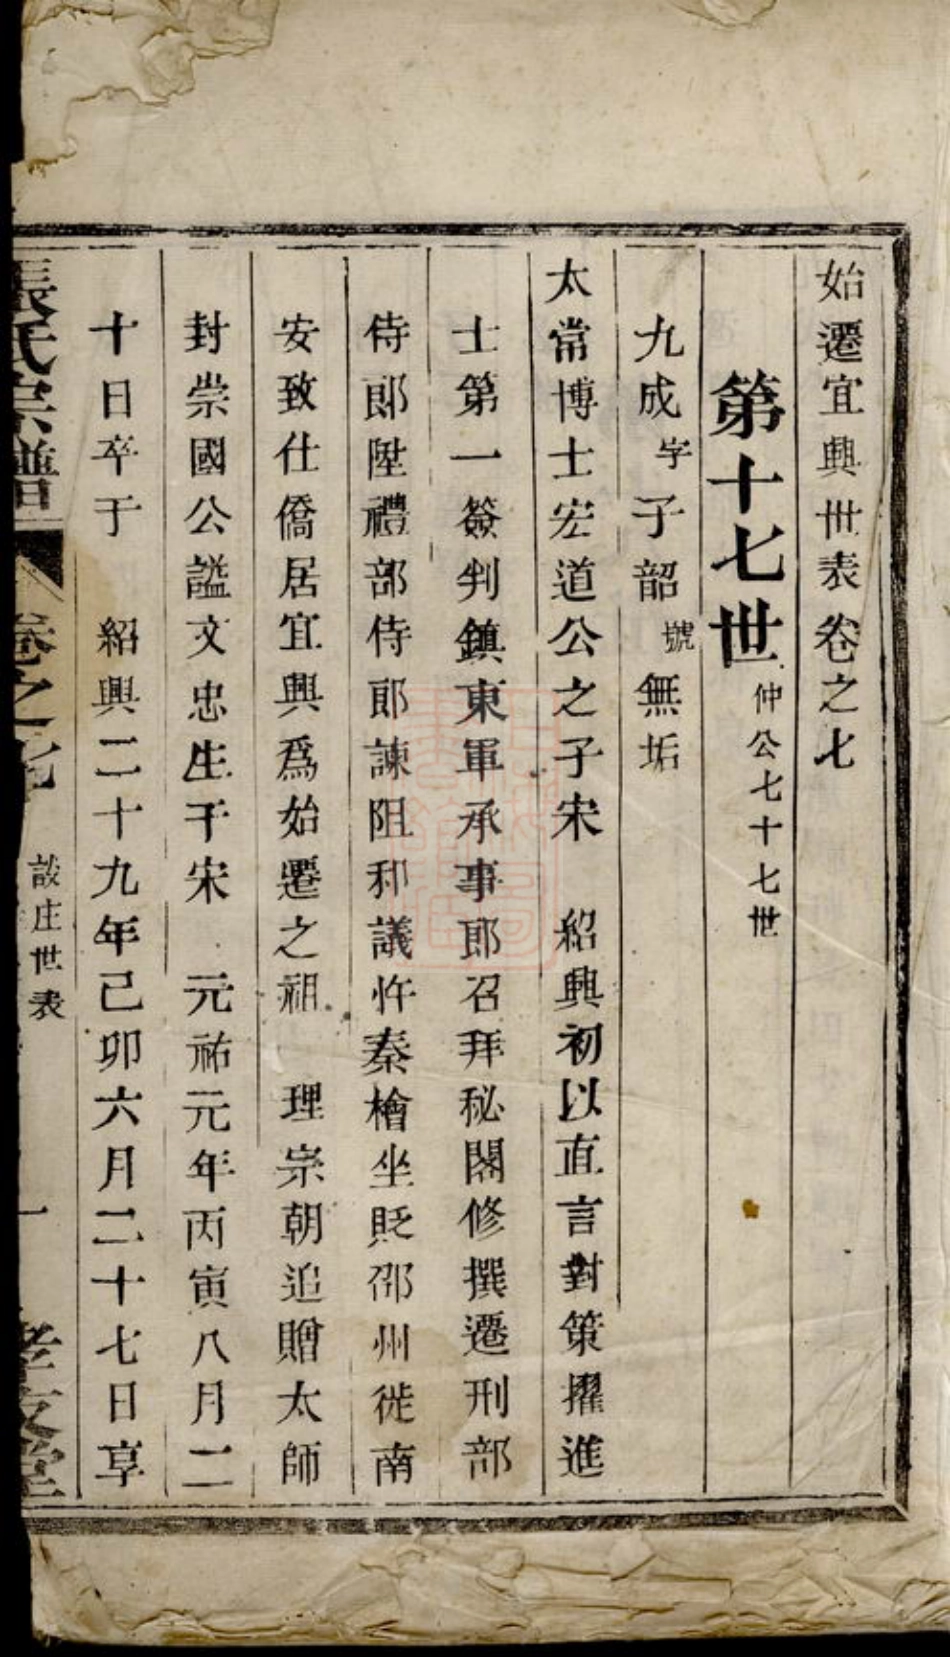 始遷宜興世表卷之七
第十七世 仲公七十七世
九成 字 子韶 號 無垢
太常博士宏道公之子宋 紹興初以直言對策擢進
士第一簽判鎮東軍承事郎召拜秘閣修撰遷刑部
侍郎陞禮部侍郎諫阻和議忤秦檜坐貶邵州徙南
安致仕僑居宜興為始遷之祖 理宗朝追贈太師
封崇國公謚文忠生于宋 元祐元年丙寅八月二
十日卒于 紹興二十九年己卯六月二十七日享
張氏宗譜 卷之七 談庄世表 一 孝友堂